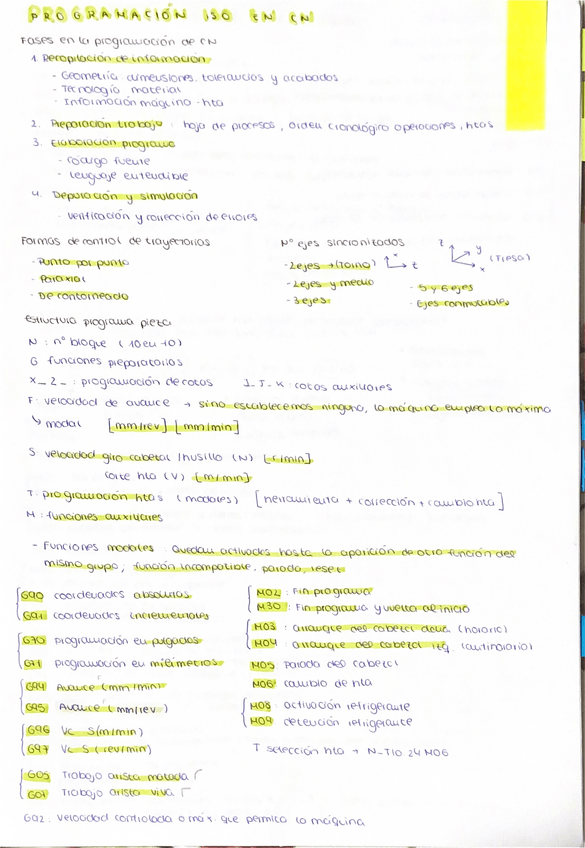 PROGRAMACIÓN ISO EN CN
Fases en la programación de CN
1. Recopilación de información
- Geometría: dimensiones, tolerancias y acabados
- Tecnología material
- Información máquina-hta
2. Preparación trabajo: hoja de procesos, orden cronológico operaciones, htas
3. Elaboración programa
- código fuente
- lenguaje entendible
4. Depuración y simulación
- verificación y corrección de errores
Formas de control de trayectorias
- Punto por punto
- Paraxial
- De contorneado
Nº ejes sincronizados
- 2 ejes → (Torno) x z
z y x (Fresa)
- 2 ejes y medio
- 3 ejes
- 5 y 6 ejes
- Ejes conmutables
Estructura programa pieza
N : nº bloque (10 en 10)
G funciones preparatorias
X_Z_ : programación de cotas I-J-K: cotas auxiliares
F: velocidad de avance → si no establecemos ninguna, la máquina emplea la máxima
↳ modal [mm/rev] [mm/min]
S: velocidad giro cabezal/husillo (N) [r/min]
corte hta (V) [m/min]
T: programación htas (modales) [herramienta + corrección + cambio hta]
M: funciones auxiliares
- Funciones modales: Quedan activadas hasta la aparición de otra función del
mismo grupo, función incompatible, parada, reset
G90 coordenadas absolutas
G91 coordenadas incrementales
G70 programación en pulgadas
G71 programación en milímetros
G94 Avance (mm/min)
G95 Avance (mm/rev)
G96 Vc S(m/min)
G97 Vc S (rev/min)
G05 Trabajo arista matada
G07 Trabajo arista viva
M02: Fin programa
M30: Fin programa y vuelta al inicio
M03: arranque del cabezal dcha (horario)
M04 arranque del cabezal izq (antihorario)
M05 Parada del cabezal
M06 cambio de hta
M08 activación refrigerante
M09 detención refrigerante
T selección hta → N_T10.24 M06
G92: velocidad controlada o máx. que permita la máquina